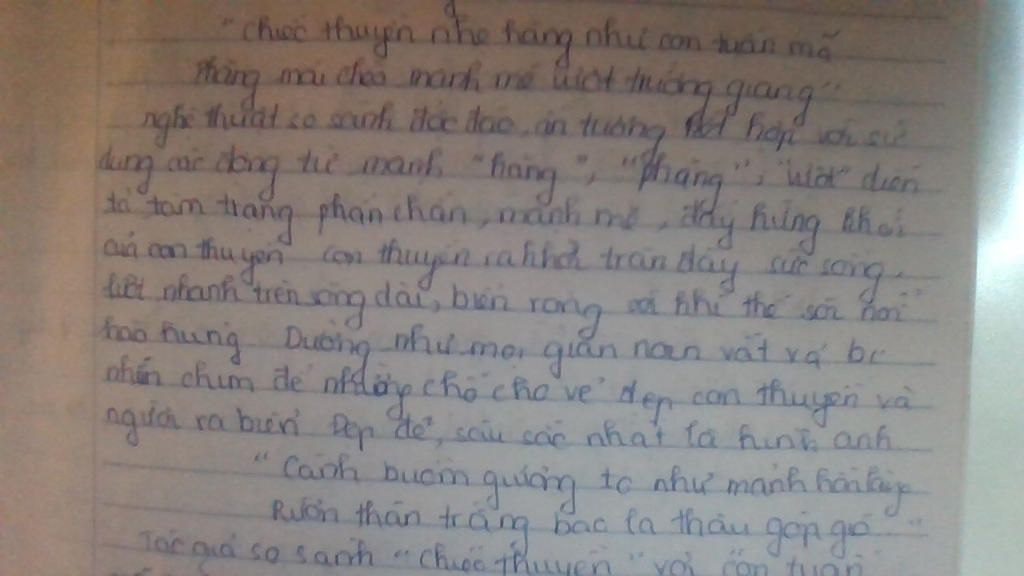 "Chiếc thuyền nhẹ hăng như con tuấn mã
Phăng mái chèo mạnh mẽ vượt trường giang"
nghệ thuật so sánh độc đáo, ấn tượng kết hợp với sử
dụng các động từ mạnh "hăng", "phăng", "vượt" diễn
tả tâm trạng phấn chấn, mạnh mẽ, đầy hứng khởi
của con thuyền con thuyền ra khơi tràn đầy sức sống,
nhanh trên sông dài, biển rộng với khí thế sôi nổi
hào hứng Dường như mọi gian nan vất vả bị
nhấn chìm để nhường chỗ cho vẻ đẹp con thuyền và
người ra biển Đẹp đẽ, sâu sắc nhất là hình ảnh
"Cánh buồm giương to như mảnh hồn làng
Rướn thân trắng bao la thâu góp gió"
Tác giả so sánh "chiếc thuyền" với con tuấn